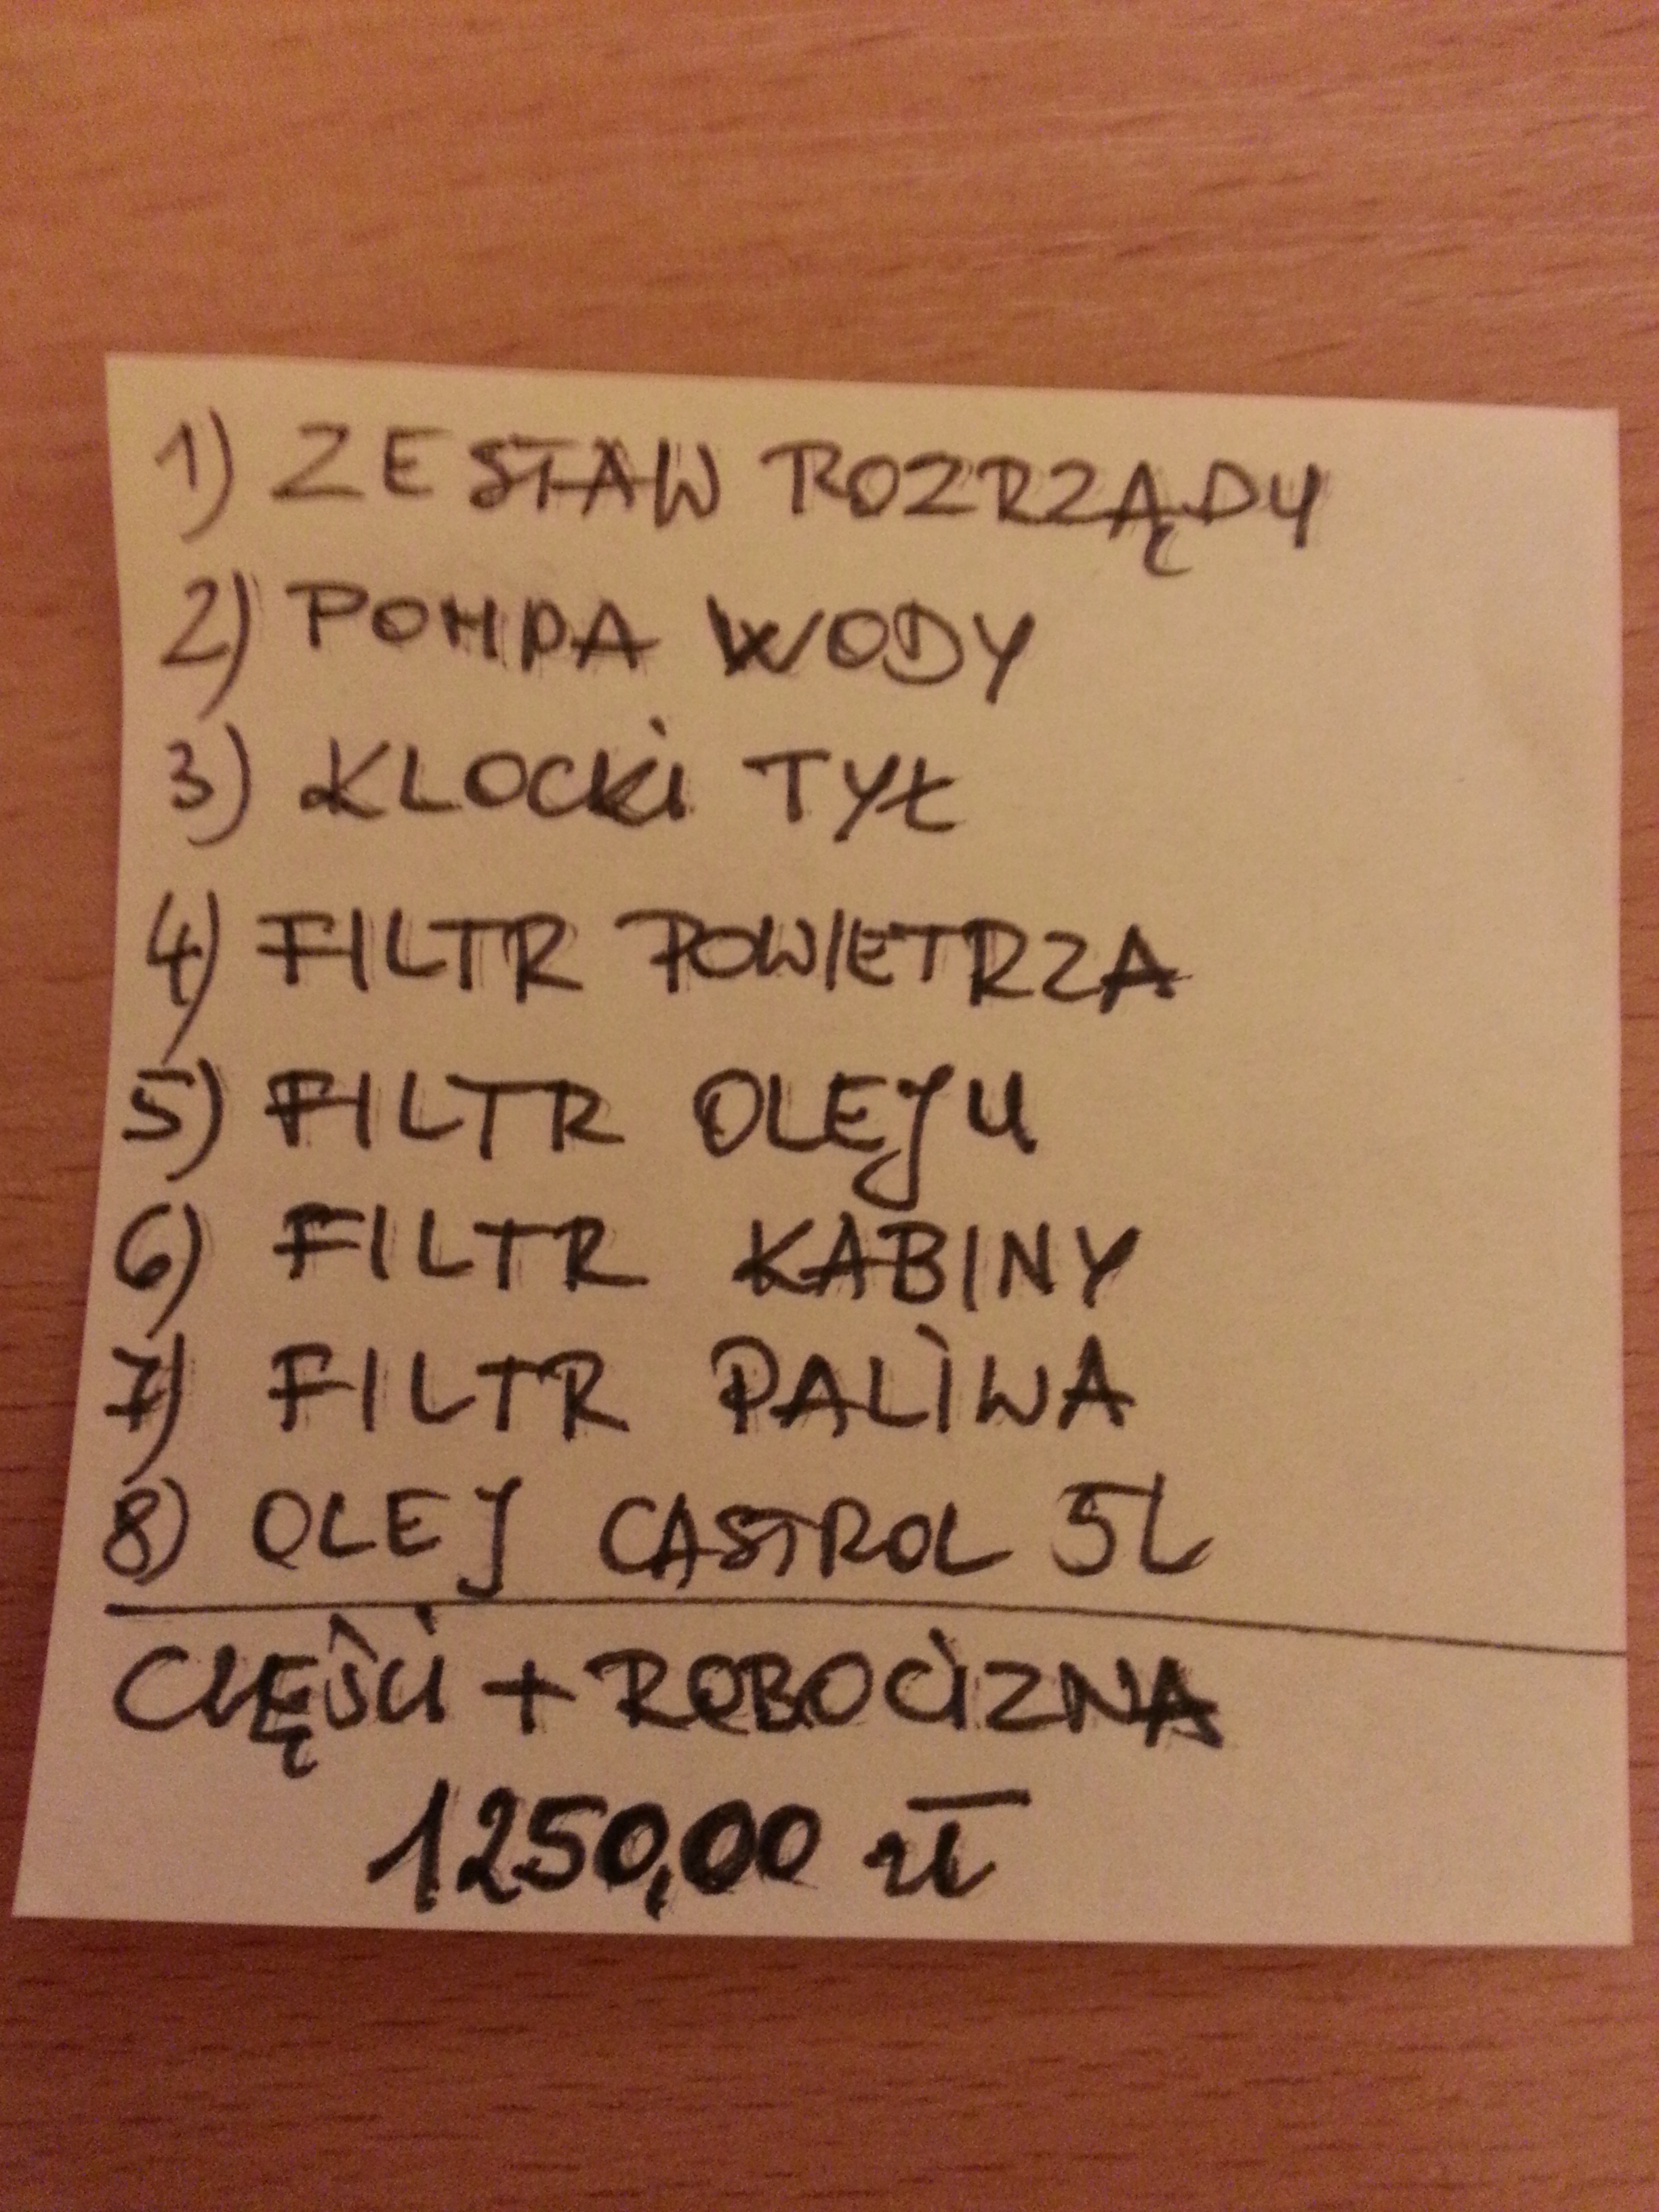 1) ZESTAW ROZRZĄDU
2) POMPA WODY
3) KLOCKI TYŁ
4) FILTR POWIETRZA
5) FILTR OLEJU
6) FILTR KABINY
7) FILTR PALIWA
8) OLEJ CASTROL 5L
CZĘŚCI + ROBOCIZNA
1250,00 zł